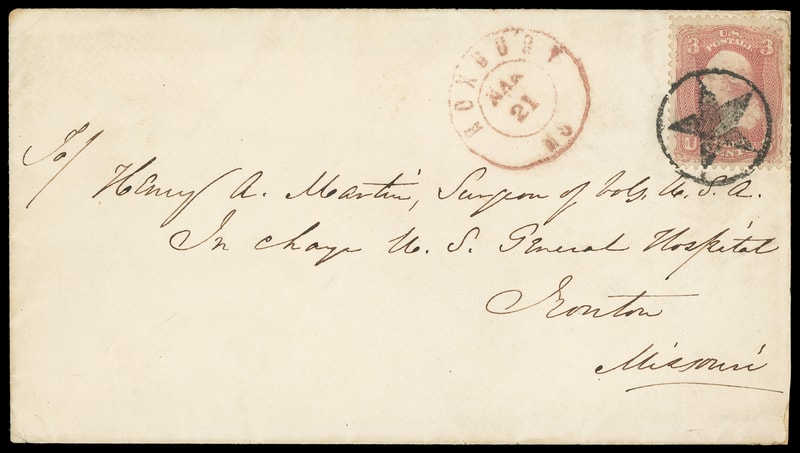 ROXBURY
MS
MAR
21
3 U.S. 3
POSTAGE
U
CENTS
To/
Henry A. Martin, Surgeon of Vols. U. S. A.
In charge U. S. General Hospital
Ironton
Missouri